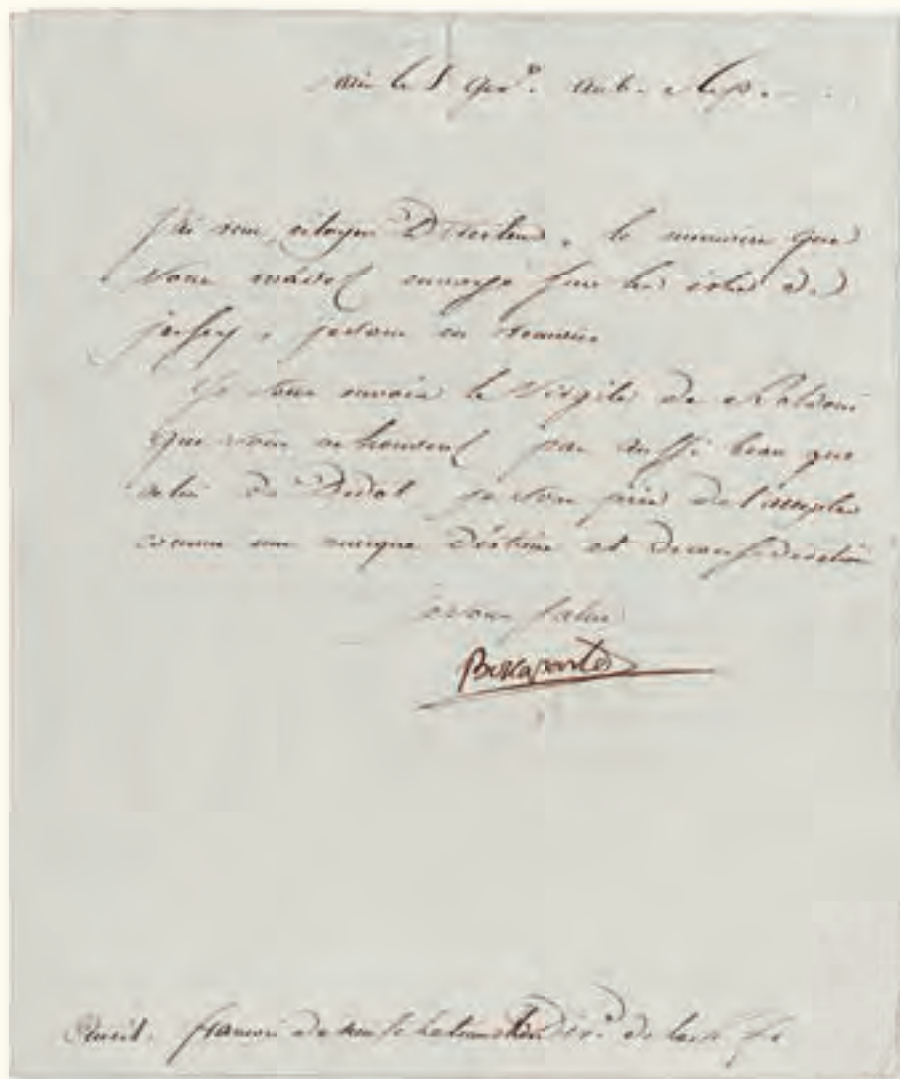 le an 6. Rep.
J'ai reçu, citoyen Directeur, le mémoire que
vous m'avez envoyé sur les isles de
jersey, je vous en remercie
Je vous envoie le Virgile de
que vous ne trouverez pas aussi beau que
celui de Didot je vous prie de l'accepter
comme une marque d'estime et de considération
je vous salue
Bonaparte
Au cit. françois de neufchateau de la